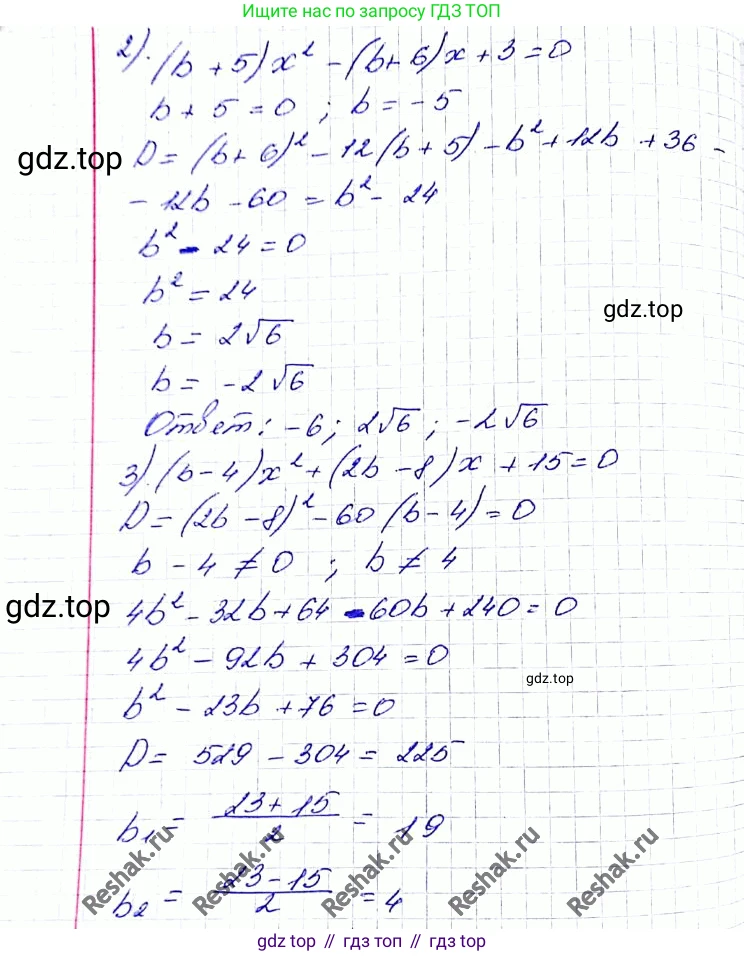 Ищите нас по запросу ГДЗ ТОП
2). (b + 5)x² - (b + 6)x + 3 = 0
b + 5 = 0 ; b = -5
D = (b + 6)² - 12(b + 5) - b² + 12b + 36 -
gdz.top
- 12b - 60 = b² - 24
b² - 24 = 0
b² = 24
gdz.top
b = 2√6
b = -2√6
Ответ: -6; 2√6; -2√6
3). (b - 4)x² + (2b - 8)x + 15 = 0
D = (2b - 8)² - 60(b - 4) = 0
b - 4 ≠ 0 ; b ≠ 4
gdz.top
4b² - 32b + 64 - 60b + 240 = 0
4b² - 92b + 304 = 0
gdz.top
b² - 23b + 76 = 0
D = 529 - 304 = 225
b₁ = (23 + 15)/2 = 19
b₂ = (23 - 15)/2 = 4
Reshak.ru Reshak.ru Reshak.ru Reshak.ru Reshak.ru
gdz top // гдз топ // gdz.top